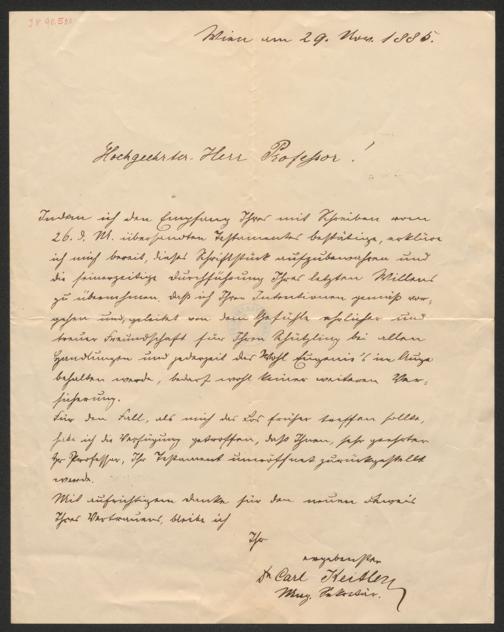 Wien am 29. Nov. 1885.
Hochgeehrter Herr Professor!
Indem ich den Empfang Ihres mit Schreiben vom
26. d. M. übersandten Testamentes bestätige, erkläre
ich mich bereit, dieses Schriftstück aufzubewahren und
die seinerzeitige Durchführung Ihres letzten Willens
zu übernehmen. Daß ich Ihren Intentionen gemäß vor-
gehen und, geleitet von dem Gefühle ehrlicher und
treuer Freundschaft für Ihren Schützling bei allen
Handlungen und jederzeit das Wohl Eugenie's im Auge
behalten werde, bedarf wohl keiner weiteren Ver-
sicherung.
Für den Fall, als mich das Los früher treffen sollte,
habe ich die Verfügung getroffen, daß Ihnen, sehr geehrter
Hr Professor, Ihr Testament uneröffnet zurückgestellt
werde.
Mit aufrichtigem Danke für den neuen Beweis
Ihres Vertrauens, bleibe ich
Ihr
ergebenster
Dr Carl Keitler
Mag. Sekretär.